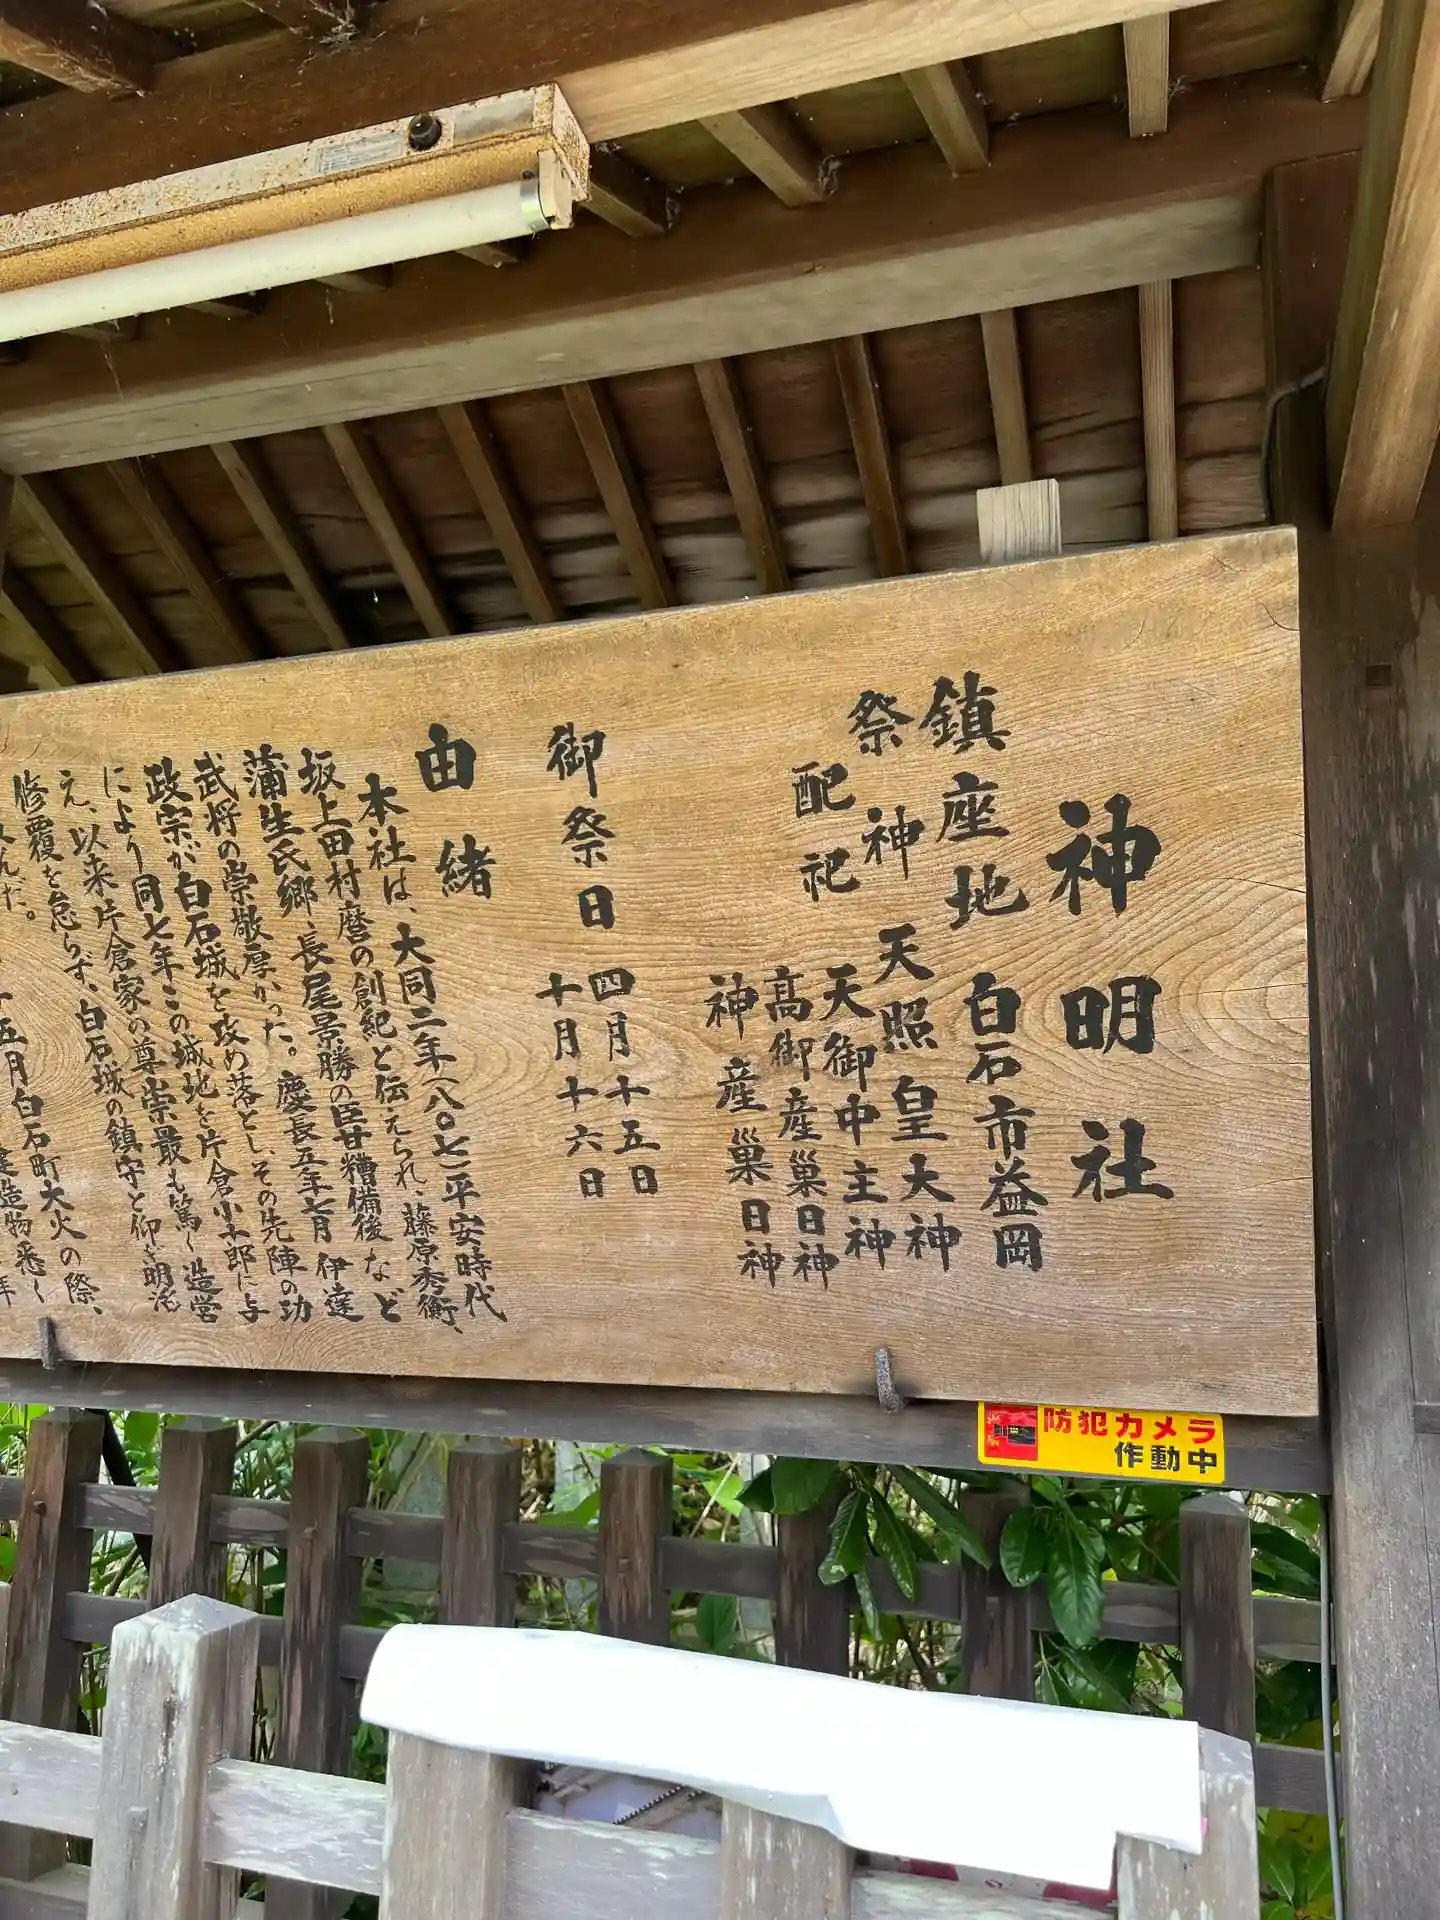 神明社
鎮座地 白石市益岡
祭神 天照皇大神
天御中主神
配祀 高御産巣日神
神産巣日神
御祭日 四月十五日
十月十六日
由緒
本社は、大同二年(八〇七)平安時代
坂上田村麿の創紀と伝えられ、藤原秀衡、
蒲生氏郷、長尾景勝の臣甘糟備後など
武将の崇敬厚かった。慶長五年七月 伊達
政宗が白石城を攻め落とし、その先陣の功
により同七年この城地を片倉小十郎に与
え、以来片倉家の尊崇最も篤く造営
修覆を怠らず、白石城の鎮守と仰ぎ明治
五月白石町大火の際、
建造物悉く
防犯カメラ
作動中